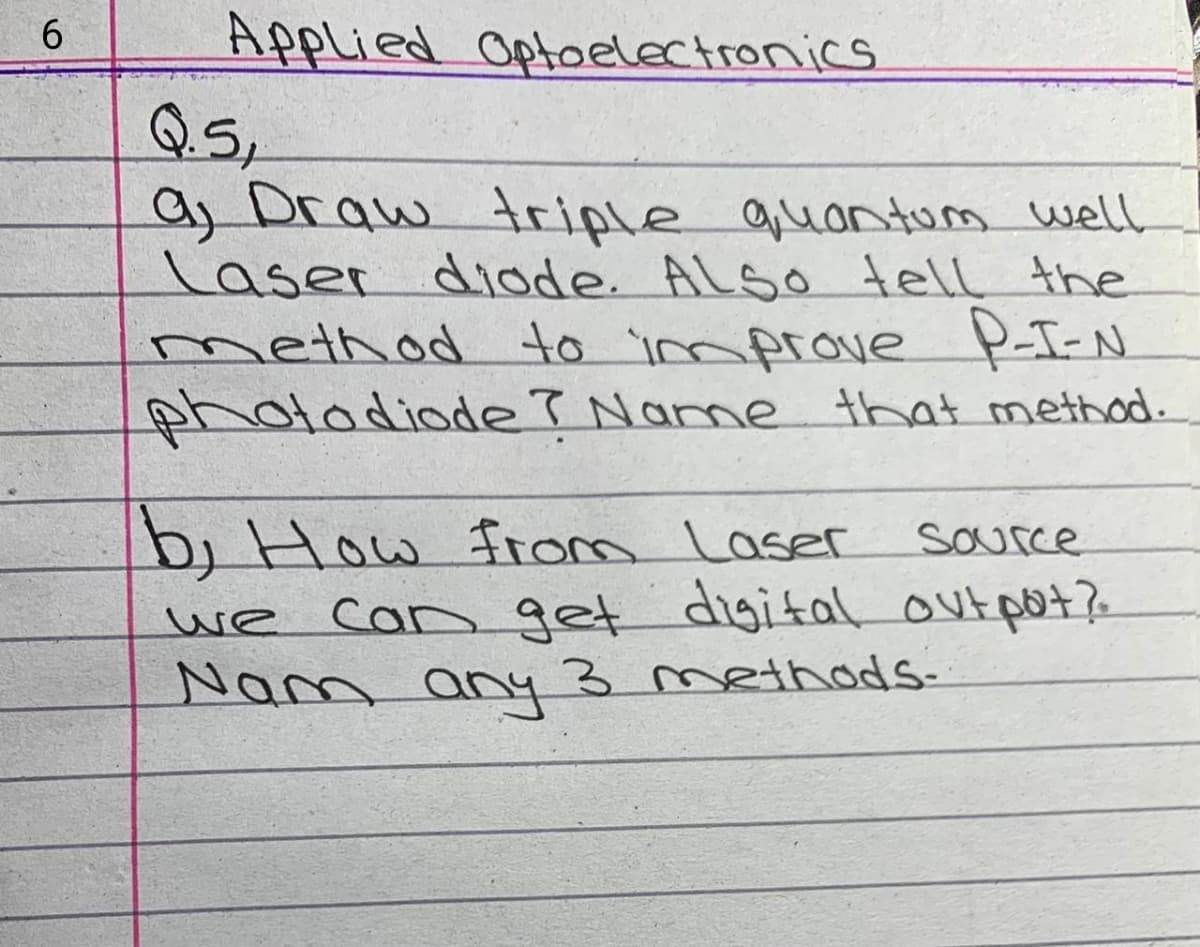 6
Applied Optoelectronics
Q.5,
a, Draw triple quantum well
laser diode. Also tell the
method to improve P-I-N
photodiode? Name that method.
b, How from Laser source
we can get digital output?
Nam any 3 methods.